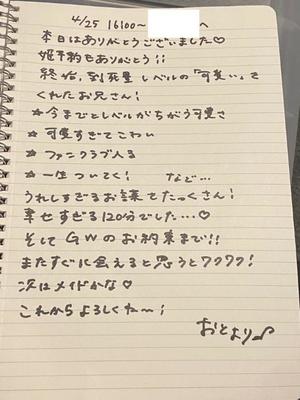 4/25 16:00~ へ
本日はありがとうございました♡
姫予約もありがとう!!
終始、到死量レベルの「可愛い」を
くれたお兄さん!
☆今までとレベルがちがう可愛さ
☆可愛すぎてこわい
☆ファンクラブ入る
☆一生ついてく! など…
うれしすぎるお言葉たっくさん!
幸せすぎる120分でした…♡
そしてGWのお約束まで!!
またすぐに会えると思うとワクワク!
次はメイドかな♡
これからよろしくね〜!
おとより♪